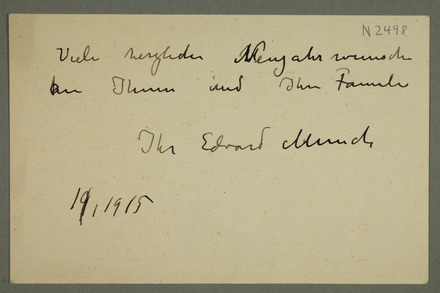 N2498
Viele herzliche Neujahrwunsche
an Ihnen und Ihre Familie
Ihr Edvard Munch
19/1 1915